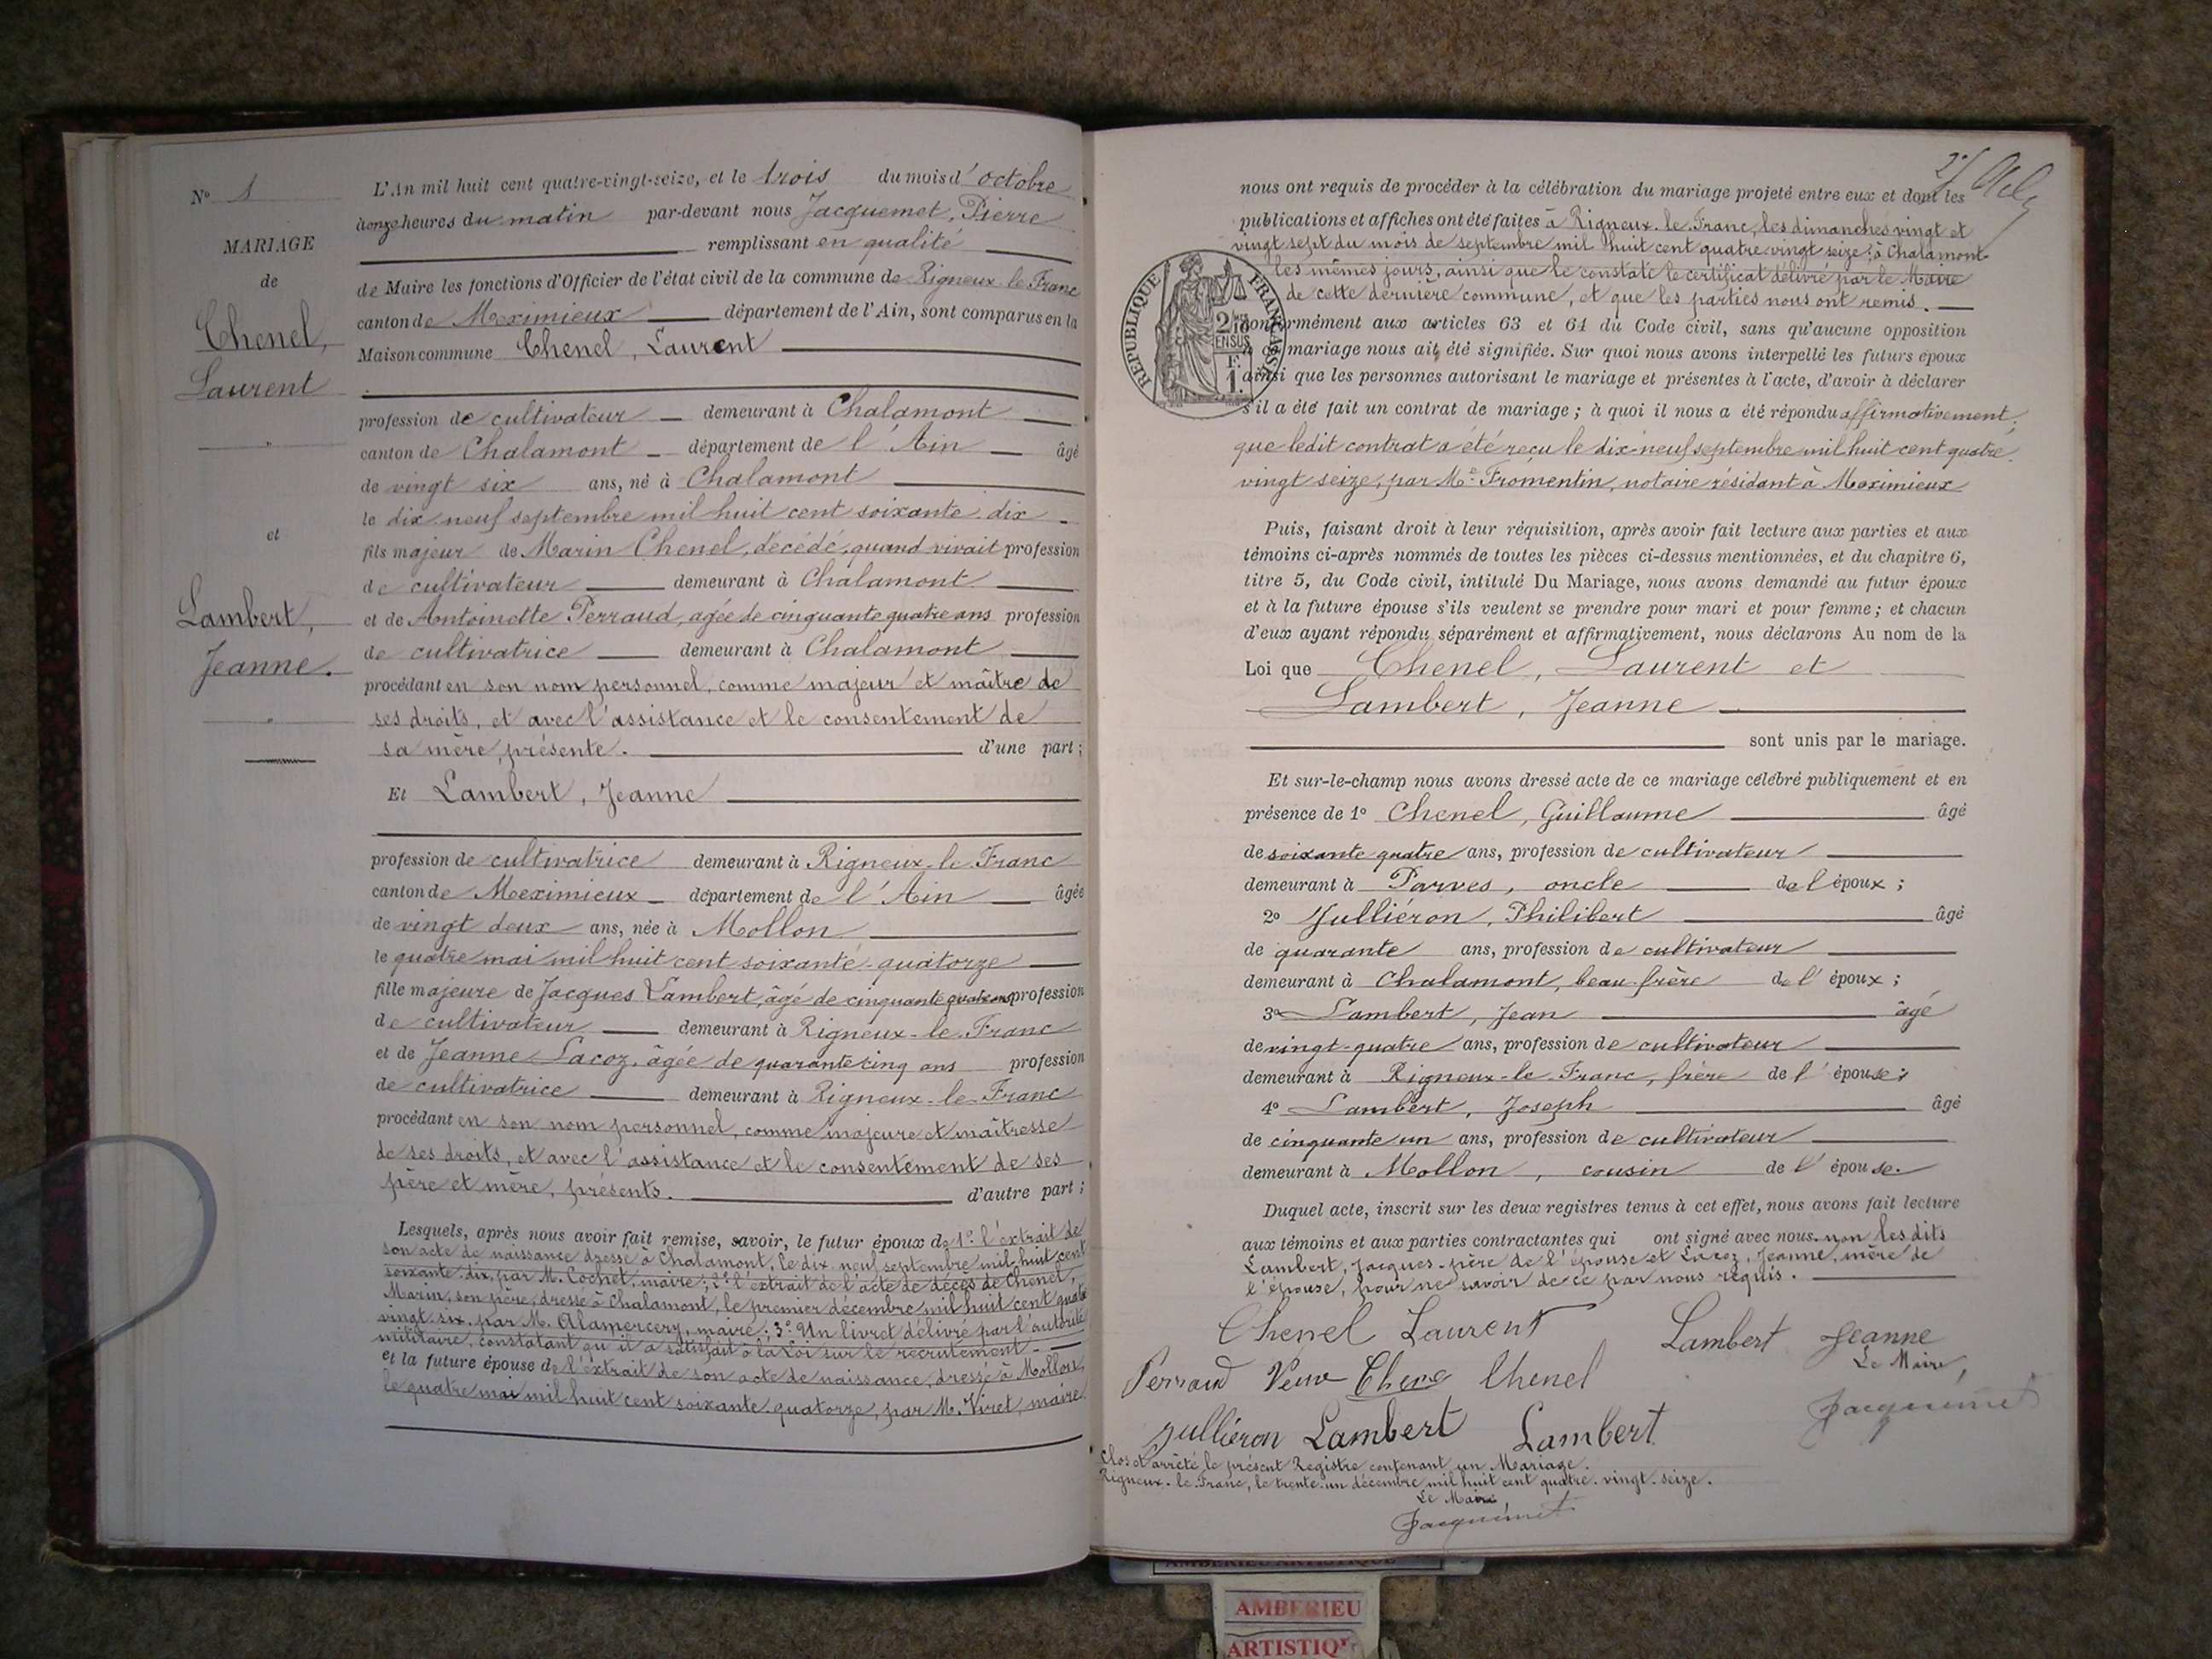 N° 1
MARIAGE
de
Chenel,
Laurent
et
Lambert,
Jeanne.
L'An mil huit cent quatre-vingt-seize, et le trois du mois d'octobre
à onze heures du matin par-devant nous Jacquemet, Pierre
remplissant en qualité
de Maire les fonctions d'Officier de l'état civil de la commune de Rigneux-le-Franc
canton de Meximieux département de l'Ain, sont comparus en la
Maison commune Chenel, Laurent
profession de cultivateur demeurant à Chalamont
canton de Chalamont département de l'Ain âgé
de vingt six ans, né à Chalamont
le dix-neuf septembre mil huit cent soixante-dix
fils majeur de Marin Chenel, décédé, quand vivait profession
de cultivateur demeurant à Chalamont
et de Antoinette Perraud, agée de cinquante quatre ans profession
de cultivatrice demeurant à Chalamont
procédant en son nom personnel, comme majeur et maître de
ses droits, et avec l'assistance et le consentement de
sa mère, présente. d'une part;
Et Lambert, Jeanne
profession de cultivatrice demeurant à Rigneux-le-Franc
canton de Meximieux département de l'Ain âgée
de vingt deux ans, née à Mollon
le quatre mai mil huit cent soixante-quatorze
fille majeure de Jacques Lambert, âgé de cinquante quatre ans profession
de cultivateur demeurant à Rigneux-le-Franc
et de Jeanne Lacoz, âgée de quarante cinq ans profession
de cultivatrice demeurant à Rigneux-le-Franc
procédant en son nom personnel, comme majeure et maîtresse
de ses droits, et avec l'assistance et le consentement de ses
père et mère, présents. d'autre part;
Lesquels, après nous avoir fait remise, savoir, le futur époux de 1° l'extrait de
son acte de naissance dressé à Chalamont, le dix-neuf septembre mil huit cent
soixante-dix, par M. Cochet, maire; 2° l'extrait de l'acte de décès de Chenel,
Marin, son père, dressé à Chalamont, le premier décembre mil huit cent quatre
vingt-six, par M. Alamercery, maire; 3° Un livret délivré par l'autorité
militaire, constatant qu'il a satisfait à la Loi sur le recrutement.
et la future épouse de l'extrait de son acte de naissance, dressé à Mollon,
le quatre mai mil huit cent soixante-quatorze, par M. Viret, maire.
nous ont requis de procéder à la célébration du mariage projeté entre eux et dont les
publications et affiches ont été faites à Rigneux-le-Franc, les dimanches vingt et
vingt sept du mois de septembre mil huit cent quatre vingt seize; à Chalamont
les mêmes jours, ainsi que le constate le certificat délivré par le Maire
de cette dernière commune, et que les parties nous ont remis.
RÉPUBLIQUE FRANÇAISE
2/10
EN SUS
1 F.
conformément aux articles 63 et 64 du Code civil, sans qu'aucune opposition
à ce mariage nous ait été signifiée. Sur quoi nous avons interpellé les futurs époux
ainsi que les personnes autorisant le mariage et présentes à l'acte, d'avoir à déclarer
s'il a été fait un contrat de mariage; à quoi il nous a été répondu affirmativement;
que ledit contrat a été reçu le dix-neuf septembre mil huit cent quatre
vingt seize, par Me Fromentin, notaire résidant à Meximieux
Puis, faisant droit à leur réquisition, après avoir fait lecture aux parties et aux
témoins ci-après nommés de toutes les pièces ci-dessus mentionnées, et du chapitre 6,
titre 5, du Code civil, intitulé Du Mariage, nous avons demandé au futur époux
et à la future épouse s'ils veulent se prendre pour mari et pour femme; et chacun
d'eux ayant répondu séparément et affirmativement, nous déclarons Au nom de la
Loi que Chenel, Laurent et
Lambert, Jeanne
sont unis par le mariage.
Et sur-le-champ nous avons dressé acte de ce mariage célébré publiquement et en
présence de 1° Chenel, Guillaume âgé
de soixante quatre ans, profession de cultivateur
demeurant à Parves, oncle de l'époux;
2° Julliéron, Philibert âgé
de quarante ans, profession de cultivateur
demeurant à Chalamont, beau-frère de l'époux;
3° Lambert, Jean âgé
de vingt-quatre ans, profession de cultivateur
demeurant à Rigneux-le-Franc, frère de l'épouse;
4° Lambert, Joseph âgé
de cinquante un ans, profession de cultivateur
demeurant à Mollon, cousin de l'épouse.
Duquel acte, inscrit sur les deux registres tenus à cet effet, nous avons fait lecture
aux témoins et aux parties contractantes qui ont signé avec nous. non les dits
Lambert, Jacques, père de l'épouse et Lacoz, Jeanne, mère de
l'épouse, pour ne savoir de ce par nous requis.
Chenel Laurent Lambert Jeanne
Le Maire,
Perraud Veuve Chene Chenel
Jacquemet
Julliéron Lambert Lambert
Clos et arrêté le présent Registre contenant un Mariage.
Rigneux-le-Franc, le trente-un décembre mil huit cent quatre-vingt-seize.
Le Maire,
Jacquemet
AMBERIEU ARTISTIQUE
AMBERIEU
ARTISTIQU